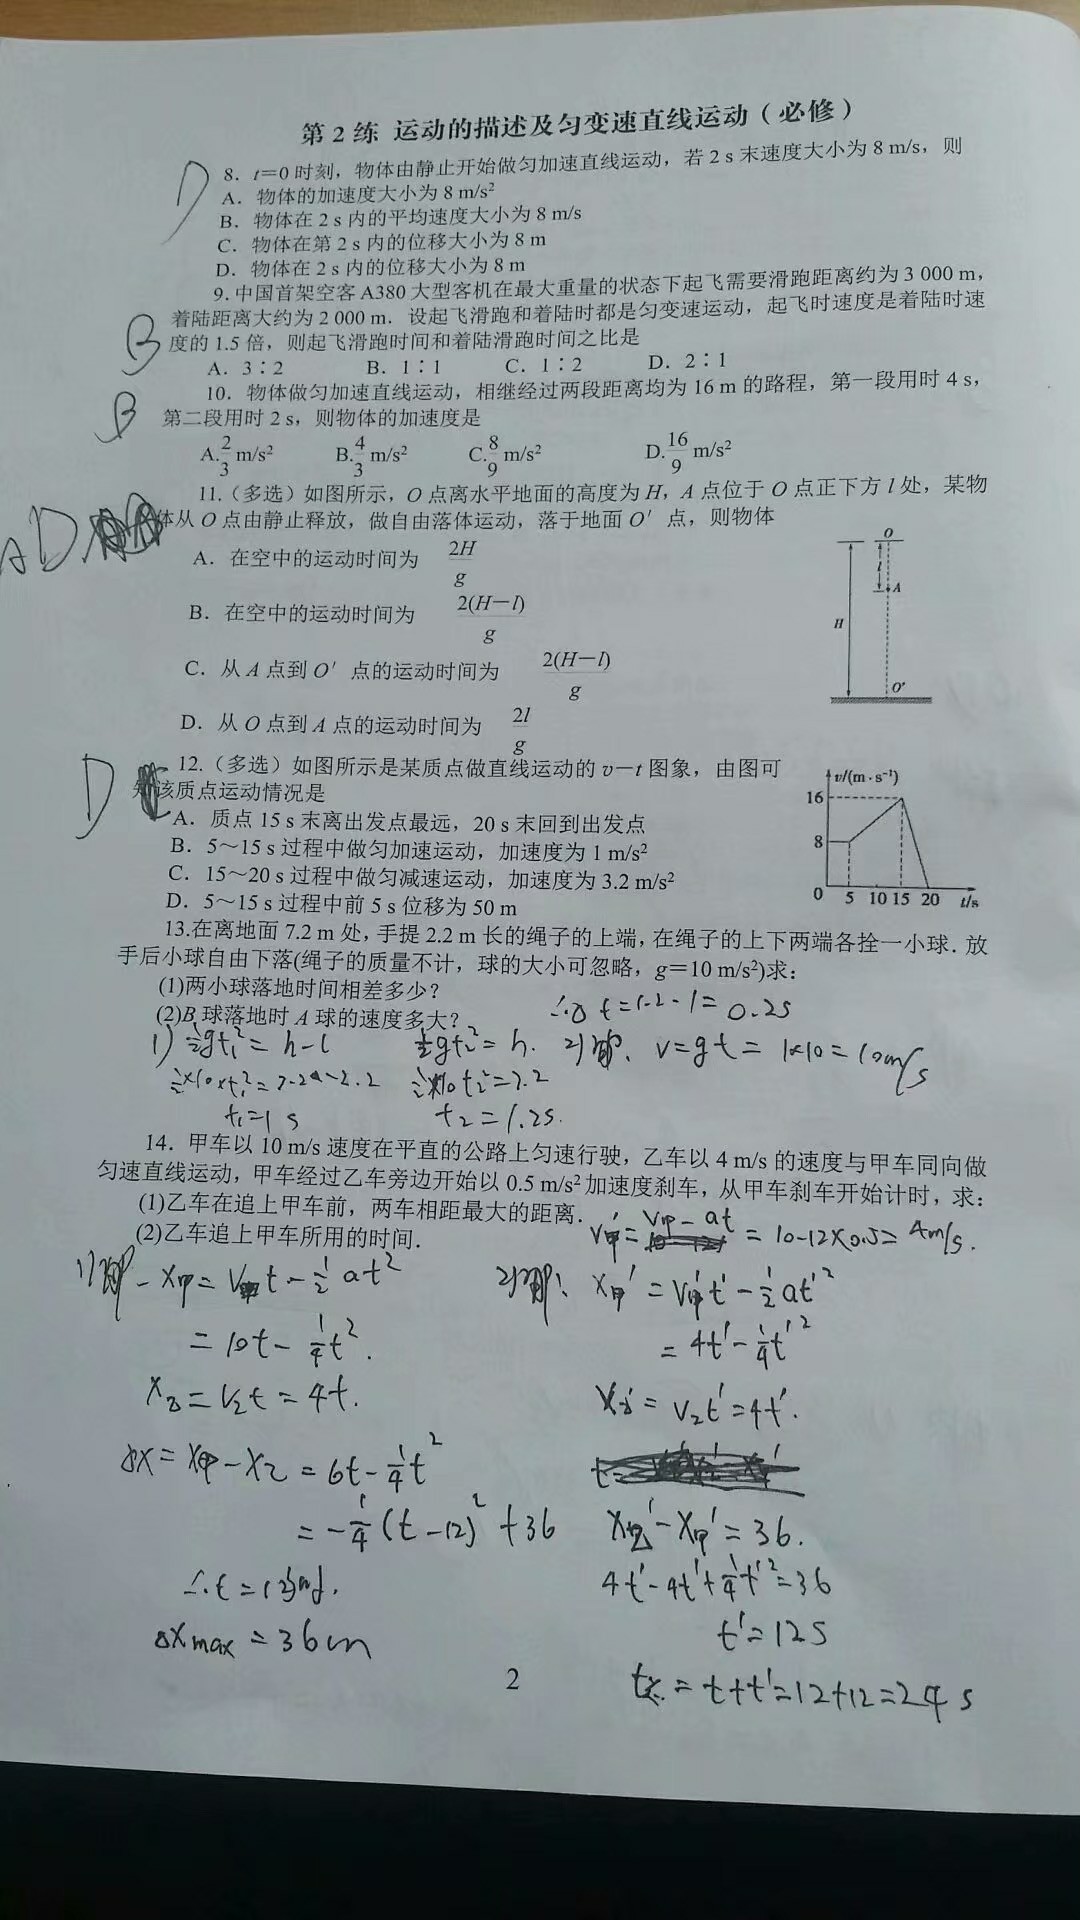 第 2 练 运动的描述及匀变速直线运动（必修）
D
8．t＝0 时刻，物体由静止开始做匀加速直线运动，若 2 s 末速度大小为 8 m/s，则
A．物体的加速度大小为 8 m/s²
B．物体在 2 s 内的平均速度大小为 8 m/s
C．物体在第 2 s 内的位移大小为 8 m
D．物体在 2 s 内的位移大小为 8 m
9.中国首架空客 A380 大型客机在最大重量的状态下起飞需要滑跑距离约为 3 000 m，
着陆距离大约为 2 000 m．设起飞滑跑和着陆时都是匀变速运动，起飞时速度是着陆时速
B
度的 1.5 倍，则起飞滑跑时间和着陆滑跑时间之比是
A．3∶2 B．1∶1 C．1∶2 D．2∶1
10．物体做匀加速直线运动，相继经过两段距离均为 16 m 的路程，第一段用时 4 s，
B
第二段用时 2 s，则物体的加速度是
A.2/3 m/s² B.4/3 m/s² C.8/9 m/s² D.16/9 m/s²
11.（多选）如图所示，O 点离水平地面的高度为 H，A 点位于 O 点正下方 l 处，某物
AD
体从 O 点由静止释放，做自由落体运动，落于地面 O′ 点，则物体
A．在空中的运动时间为 2H/g
B．在空中的运动时间为 2(H－l)/g
C．从 A 点到 O′ 点的运动时间为 2(H－l)/g
D．从 O 点到 A 点的运动时间为 2l/g
O
l
A
H
O′
D
12.（多选）如图所示是某质点做直线运动的 v－t 图象，由图可
该质点运动情况是
A．质点 15 s 末离出发点最远，20 s 末回到出发点
B．5～15 s 过程中做匀加速运动，加速度为 1 m/s²
C．15～20 s 过程中做匀减速运动，加速度为 3.2 m/s²
D．5～15 s 过程中前 5 s 位移为 50 m
v/(m·s⁻¹)
16
8
0 5 10 15 20 t/s
13.在离地面 7.2 m 处，手提 2.2 m 长的绳子的上端，在绳子的上下两端各拴一小球．放
手后小球自由下落(绳子的质量不计，球的大小可忽略，g＝10 m/s²)求：
(1)两小球落地时间相差多少？
(2)B 球落地时 A 球的速度多大？
∴Δt=1.2-1=0.2s
1) ½gt₁²=h-l
½gt₂²=h.
2) v=gt=1×10=10m/s
½×10×t₁²=7.2-2.2
½×10t₂²=7.2
t₁=1s
t₂=1.2s.
14．甲车以 10 m/s 速度在平直的公路上匀速行驶，乙车以 4 m/s 的速度与甲车同向做
匀速直线运动，甲车经过乙车旁边开始以 0.5 m/s² 加速度刹车，从甲车刹车开始计时，求：
(1)乙车在追上甲车前，两车相距最大的距离．
(2)乙车追上甲车所用的时间．
v甲′=v甲-at=10-12×0.5=4m/s.
1) x甲=v甲t-½at²
=10t-¼t².
x乙=v₂t=4t.
Δx=x甲-x乙=6t-¼t²
=-¼(t-12)²+36
∴t=12s时.
Δxmax=36m
2) x甲′=v甲′t′-½at′²
=4t′-¼t′²
x乙′=v₂t′=4t′.
x乙′-x甲′=36.
4t′-4t′+¼t′²=36
t′=12s
t总=t+t′=12+12=24s
2